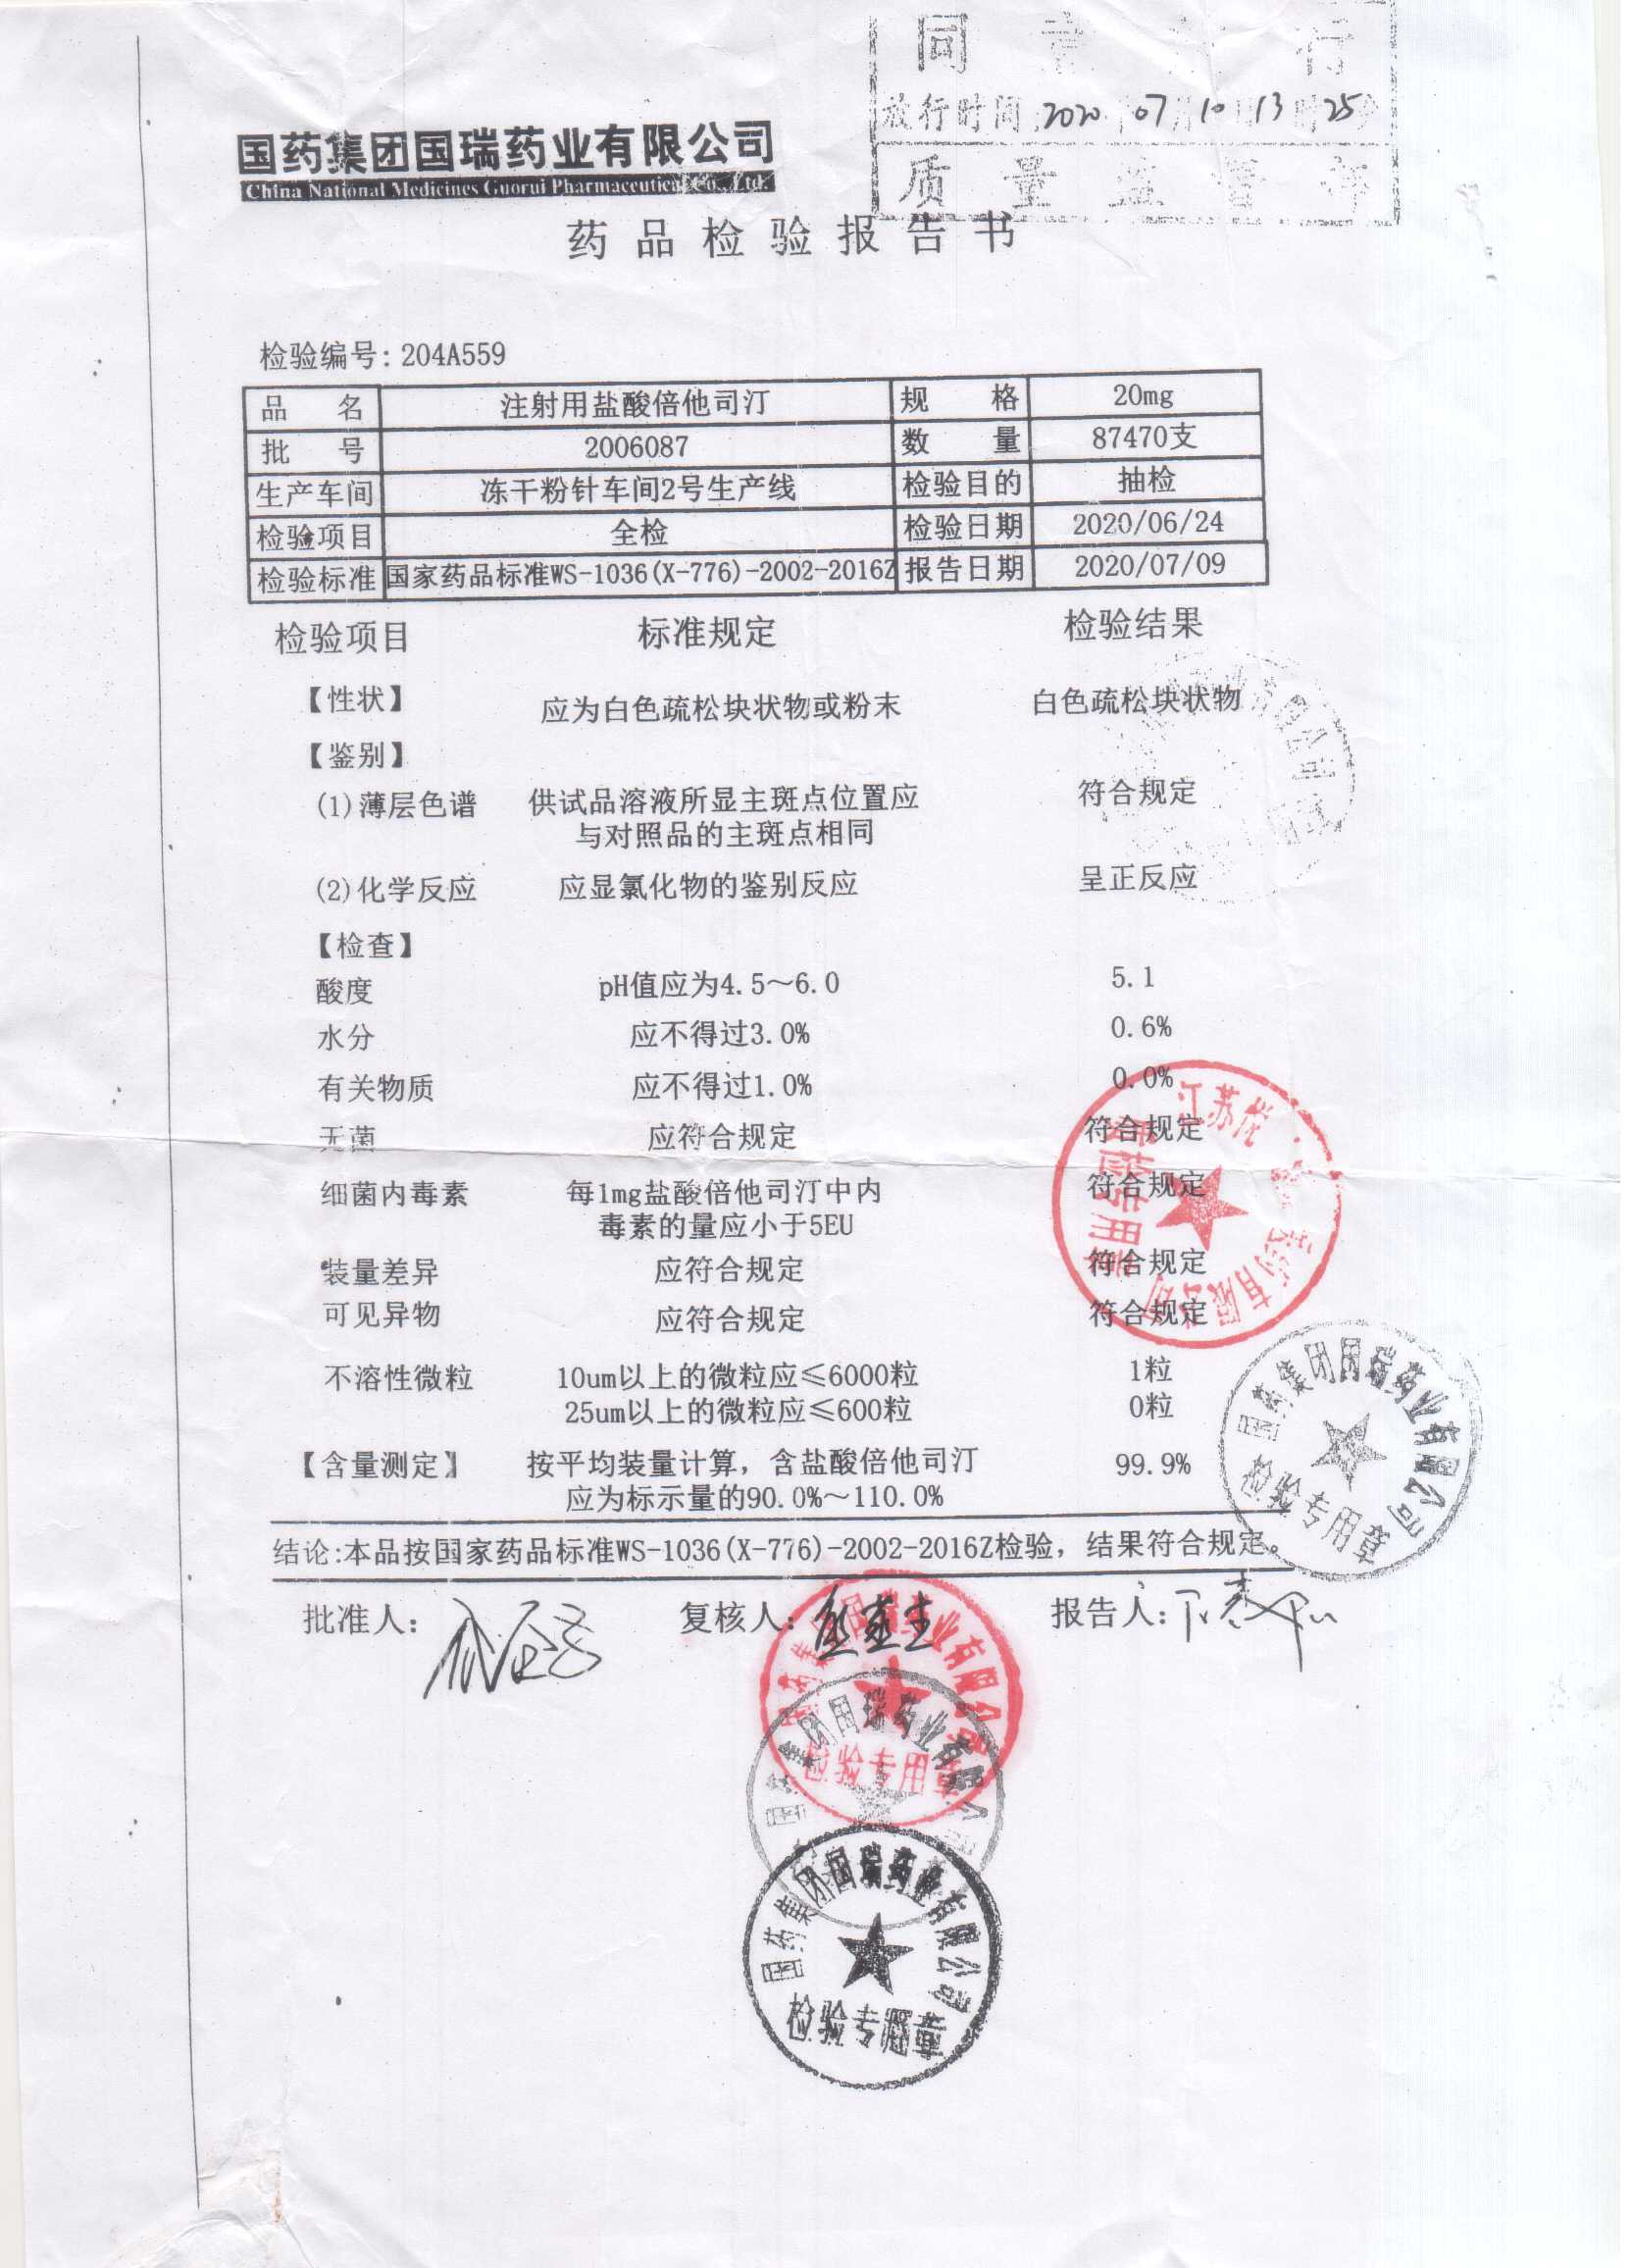 同
放行时间 2020 07月10 13时25分
质 量
国药集团国瑞药业有限公司
China National Medicines Guorui Pharmaceutical Co., Ltd.
药品检验报告书
检验编号: 204A559
品 名 注射用盐酸倍他司汀 规 格 20mg
批 号 2006087 数 量 87470支
生产车间 冻干粉针车间2号生产线 检验目的 抽检
检验项目 全检 检验日期 2020/06/24
检验标准 国家药品标准WS-1036(X-776)-2002-2016Z 报告日期 2020/07/09
检验项目 标准规定 检验结果
【性状】 应为白色疏松块状物或粉末 白色疏松块状物
【鉴别】
(1)薄层色谱 供试品溶液所显主斑点位置应 符合规定
与对照品的主斑点相同
(2)化学反应 应显氯化物的鉴别反应 呈正反应
【检查】
酸度 pH值应为4.5~6.0 5.1
水分 应不得过3.0% 0.6%
有关物质 应不得过1.0% 0.0%
无菌 应符合规定 符合规定
细菌内毒素 每1mg盐酸倍他司汀中内 符合规定
毒素的量应小于5EU
装量差异 应符合规定 符合规定
可见异物 应符合规定 符合规定
不溶性微粒 10um以上的微粒应≤6000粒 1粒
25um以上的微粒应≤600粒 0粒
【含量测定】 按平均装量计算，含盐酸倍他司汀 99.9%
应为标示量的90.0%~110.0%
结论:本品按国家药品标准WS-1036(X-776)-2002-2016Z检验，结果符合规定。
批准人: 复核人: 报告人:
国药集团国瑞药业有限公司
检验专用章
国药集团国瑞药业有限公司
检验专用章
国药集团国瑞药业有限公司
国药集团国瑞药业有限公司
检验专用章